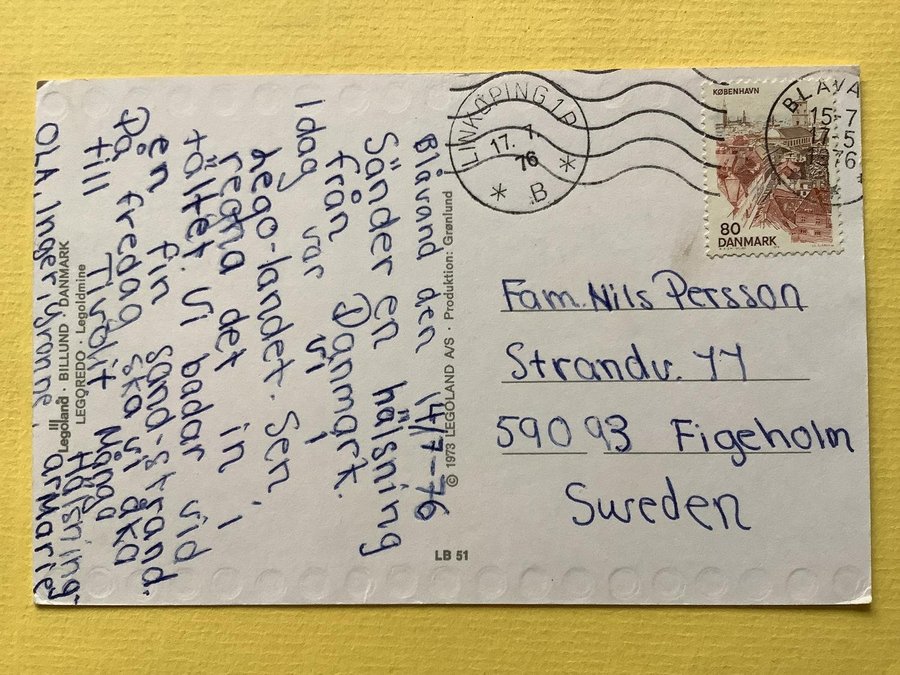 Blåvand den 14/7-76
Sänder en hälsning
från Danmark.
Idag var vi i
Lego-landet. Sen
regna det in i
tältet. Vi badar vid
en fin sand-strand.
På fredag ska vi åka
till Tivolit Många
Hälsning-
OLA Inger Yvonne
© 1973 LEGOLAND A/S · Produktion: Grønlund
Legoland · BILLUND · DANMARK
LEGOREDO · Legoldmine
LB 51
LINKÖPING 1P
17. 7.
76
* B *
BLÅVA
15-7
17.5
1976
KØBENHAVN
80
DANMARK
Fam. Nils Persson
Strandv. 11
590 93 Figeholm
Sweden